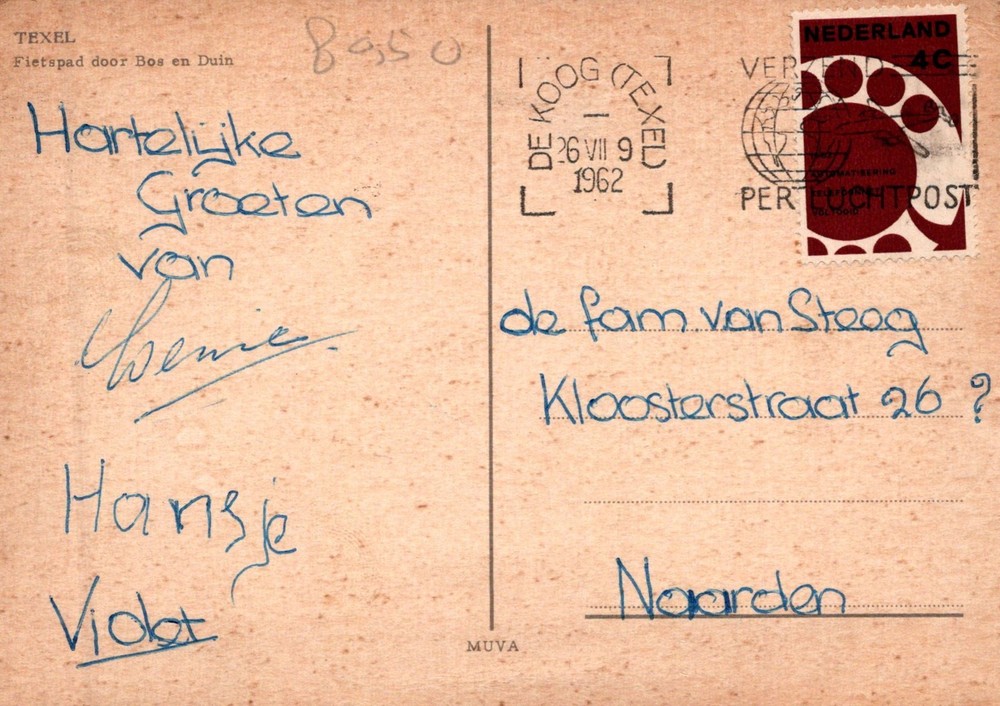 TEXEL
Fietspad door Bos en Duin
89,50
Hartelijke
Groeten
van
Hansje
Violet
MUVA
DE KOOG (TEXEL)
26 VII 9
1962
NEDERLAND
4C
PER LUCHTPOST
de fam van Steeg
Kloosterstraat 26 ?
Naarden